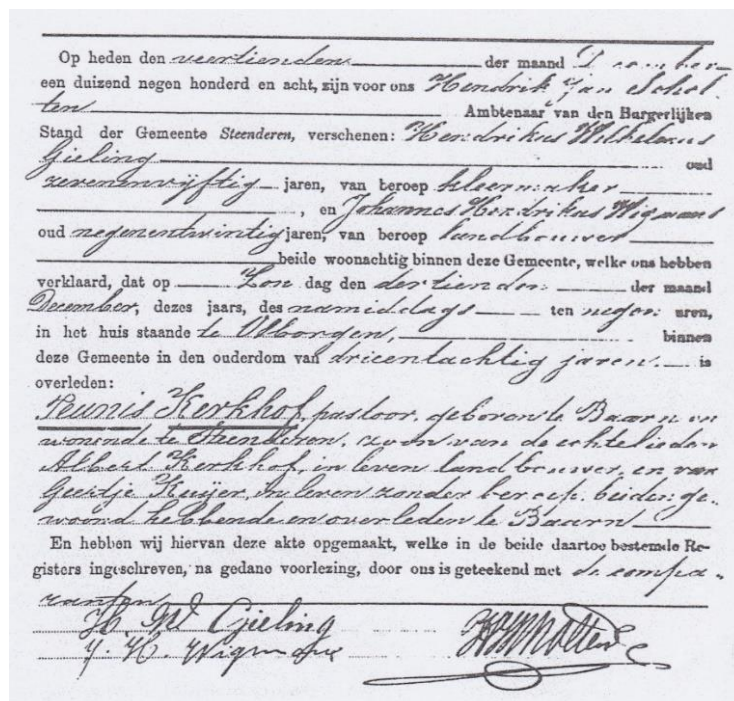 Op heden den veertienden der maand December
een duizend negen honderd en acht, zijn voor ons Hendrik Jan Schol-
ten Ambtenaar van den Burgerlijken
Stand der Gemeente Steenderen, verschenen: Hendrikus Wilhelmus
Gieling oud
zevenenvijftig jaren, van beroep kleermaker
, en Johannes Hendrikus Wigmans
oud negenentwintig jaren, van beroep landbouwer
beide woonachtig binnen deze Gemeente, welke ons hebben
verklaard, dat op Zon dag den dertienden der maand
December, dezes jaars, des namiddags ten negen uren,
in het huis staande te Olborgen, binnen
deze Gemeente in den ouderdom van drieentachtig jaren is
overleden:
Teunis Kerkhof, pastoor, geboren te Baarn en
wonende te Steenderen, zoon van de echtelieden
Albert Kerkhof, in leven landbouwer, en van
Geertje Kuijer, in leven zonder beroep, beiden ge-
woond hebbende en overleden te Baarn
En hebben wij hiervan deze akte opgemaakt, welke in de beide daartoe bestemde Re-
gisters ingeschreven, na gedane voorlezing, door ons is geteekend met de compa-
ranten
H. W. Gieling
J. H. Wigmans